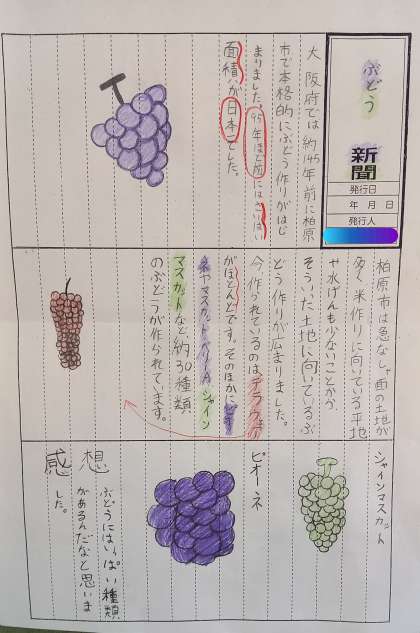 ぶどう
新聞
発行日
年 月 日
発行人
大阪府では約145年前に柏原
市で本格的にぶどう作りがはじ
まりました。95年ほど前にはさいばい
面積が日本一でした。
柏原市は急なしゃ面の土地が
多く米作りに向いている平地
や水げんも少ないことから
そういった土地に向いているぶ
どう作りが広まりました。
今作られているのはデラウェア
がほとんどです。そのほかにピオ
ーネやマスカットベリーAシャイン
マスカットなど約30種類
のぶどうが作られています。
シャインマスカット
ピオーネ
感想
ぶどうにはいっぱい種類
があるんだなと思いま
した。